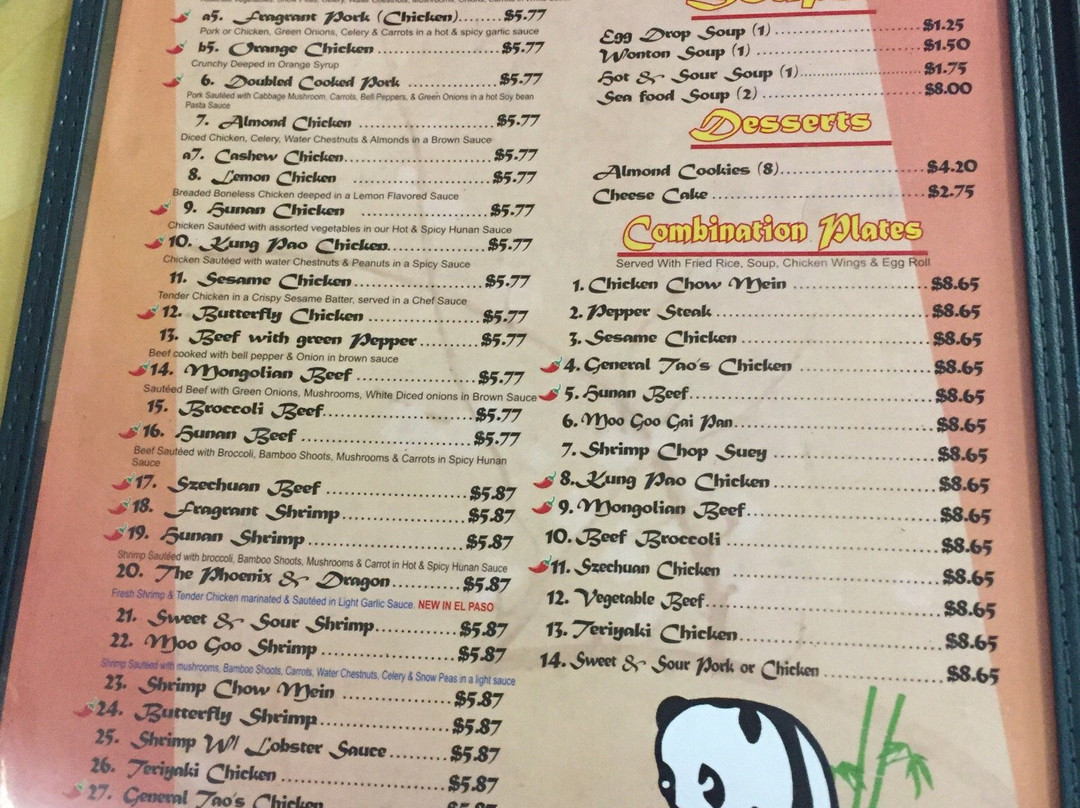 a5. Fragrant Pork (Chicken)......$5.77
Pork or Chicken, Green Onions, Celery & Carrots in a hot & spicy garlic sauce
b5. Orange Chicken ......$5.77
Crunchy Deeped in Orange Syrup
6. Doubled Cooked Pork ......$5.77
Pork Sautéed with Cabbage Mushroom, Carrots, Bell Peppers, & Green Onions in a hot Soy bean
Pasta Sauce
7. Almond Chicken ......$5.77
Diced Chicken, Celery, Water Chestnuts & Almonds in a Brown Sauce
a7. Cashew Chicken......$5.77
8. Lemon Chicken ......$5.77
Breaded Boneless Chicken deeped in a Lemon Flavored Sauce
9. Hunan Chicken ......$5.77
Chicken Sautéed with assorted vegetables in our Hot & Spicy Hunan Sauce
10. Kung Pao Chicken......$5.77
Chicken Sautéed with water Chestnuts & Peanuts in a Spicy Sauce
11. Sesame Chicken......$5.77
Tender Chicken in a Crispy Sesame Batter, served in a Chef Sauce
12. Butterfly Chicken ......$5.77
13. Beef with green Pepper......$5.77
Beef cooked with bell pepper & Onion in brown sauce
14. Mongolian Beef ......$5.77
Sautéed Beef with Green Onions, Mushrooms, White Diced onions in Brown Sauce
15. Broccoli Beef......$5.77
16. Hunan Beef ......$5.77
Beef Sautéed with Broccoli, Bamboo Shoots, Mushrooms & Carrots in Spicy Hunan
Sauce
17. Szechuan Beef ......$5.87
18. Fragrant Shrimp......$5.87
19. Hunan Shrimp......$5.87
Shrimp Sautéed with broccoli, Bamboo Shoots, Mushrooms & Carrot in Hot & Spicy Hunan Sauce
20. The Phoenix & Dragon......$5.87
Fresh Shrimp & Tender Chicken marinated & Sautéed in Light Garlic Sauce. NEW IN EL PASO
21. Sweet & Sour Shrimp......$5.87
22. Moo Goo Shrimp......$5.87
Shrimp Sautéed with mushrooms, Bamboo Shoots, Carrots, Water Chestnuts, Celery & Snow Peas in a light sauce
23. Shrimp Chow Mein ......$5.87
24. Butterfly Shrimp......$5.87
25. Shrimp W/ Lobster Sauce......$5.87
26. Teriyaki Chicken ......$5.87
27. General Tao's Chicken
Egg Drop Soup (1) ......$1.25
Wonton Soup (1) ......$1.50
Hot & Sour Soup (1)......$1.75
Sea food Soup (2) ......$8.00
Desserts
Almond Cookies (8)......$4.20
Cheese Cake ......$2.75
Combination Plates
Served With Fried Rice, Soup, Chicken Wings & Egg Roll
1. Chicken Chow Mein ......$8.65
2. Pepper Steak......$8.65
3. Sesame Chicken ......$8.65
4. General Tao's Chicken ......$8.65
5. Hunan Beef......$8.65
6. Moo Goo Gai Pan......$8.65
7. Shrimp Chop Suey ......$8.65
8. Kung Pao Chicken ......$8.65
9. Mongolian Beef......$8.65
10. Beef Broccoli ......$8.65
11. Szechuan Chicken ......$8.65
12. Vegetable Beef......$8.65
13. Teriyaki Chicken......$8.65
14. Sweet & Sour Pork or Chicken ......$8.65